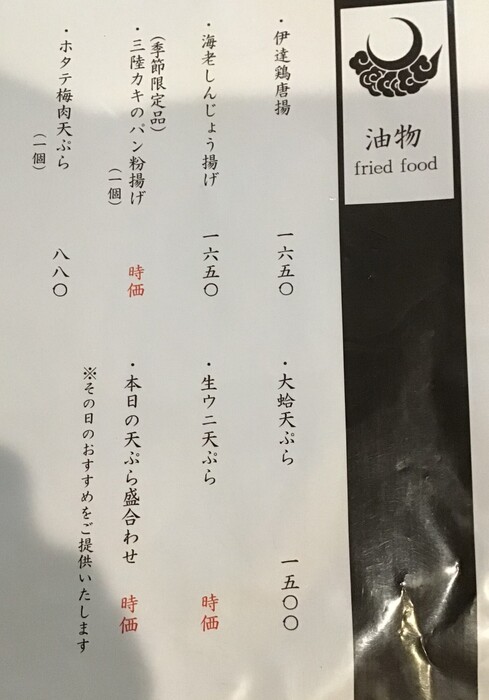 油物
fried food
・伊達鶏唐揚 一六五〇
・海老しんじょう揚げ 一六五〇
(季節限定品)
・三陸カキのパン粉揚げ 時価
(一個)
・ホタテ梅肉天ぷら 八八〇
(一個)
・大蛤天ぷら 一五〇〇
・生ウニ天ぷら 時価
・本日の天ぷら盛合わせ 時価
※その日のおすすめをご提供いたします